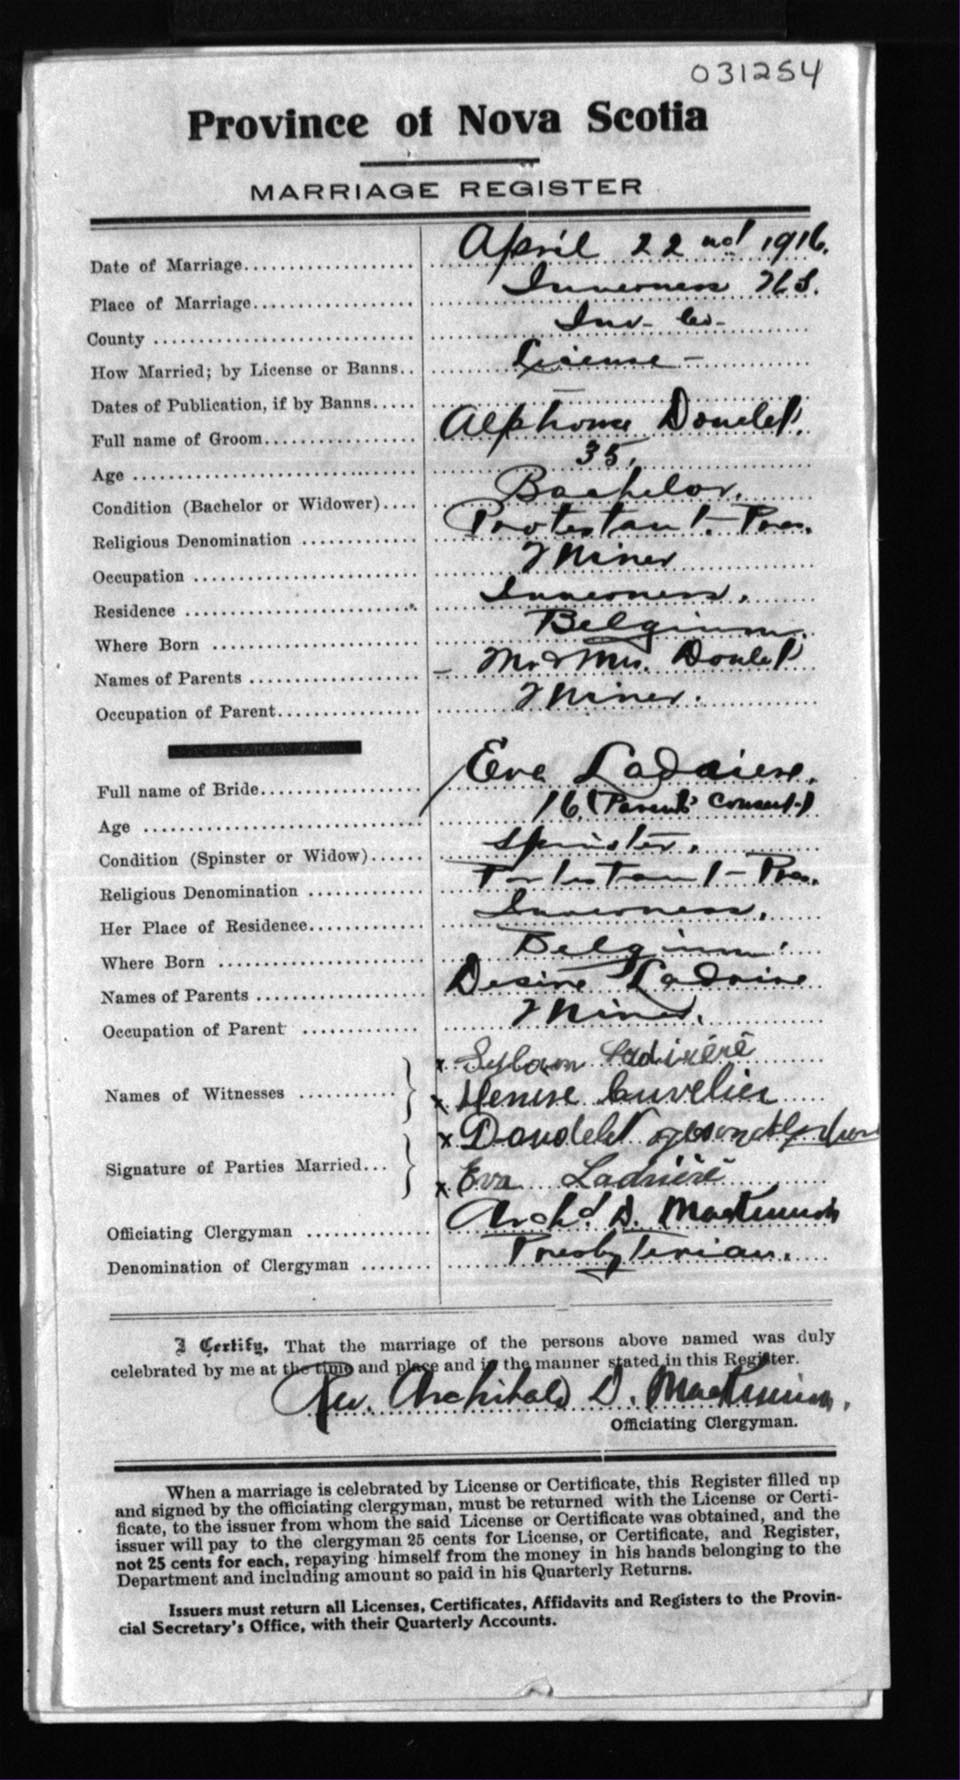 031254
Province of Nova Scotia
MARRIAGE REGISTER
Date of Marriage April 22nd 1916.
Place of Marriage Inverness N.S.
County Inv. Co.
How Married; by License or Banns License
Dates of Publication, if by Banns —
Full name of Groom Alphonse Doudelet.
Age 35.
Condition (Bachelor or Widower) Bachelor.
Religious Denomination Protestant - Pres.
Occupation Miner
Residence Inverness.
Where Born Belgium.
Names of Parents Mr & Mrs. Doudelet
Occupation of Parent Miner.
Full name of Bride Eva Ladriere.
Age 16 (Parents' Consent)
Condition (Spinster or Widow) Spinster.
Religious Denomination Protestant - Pres.
Her Place of Residence Inverness.
Where Born Belgium.
Names of Parents Desire Ladriere
Occupation of Parent Miner.
Names of Witnesses x Ladrière
x Cuvelier
Signature of Parties Married x Doudelet
x Eva Ladrière
Officiating Clergyman Archd. D. MacKinnon
Denomination of Clergyman Presbyterian.
I Certify, That the marriage of the persons above named was duly
celebrated by me at the time and place and in the manner stated in this Register.
Rev. Archibald D. MacKinnon.
Officiating Clergyman.
When a marriage is celebrated by License or Certificate, this Register filled up
and signed by the officiating clergyman, must be returned with the License or Certi-
ficate, to the issuer from whom the said License or Certificate was obtained, and the
issuer will pay to the clergyman 25 cents for License, or Certificate, and Register,
not 25 cents for each, repaying himself from the money in his hands belonging to the
Department and including amount so paid in his Quarterly Returns.
Issuers must return all Licenses, Certificates, Affidavits and Registers to the Provin-
cial Secretary's Office, with their Quarterly Accounts.